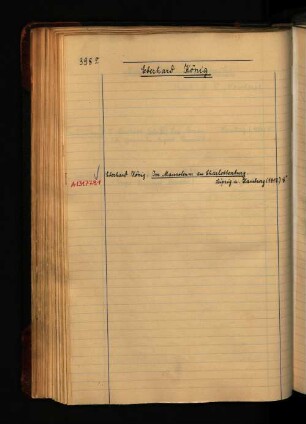 Eberhard König
Eberhard König: Im Mausoleum zu Charlottenburg.
Leipzig u. Hamburg